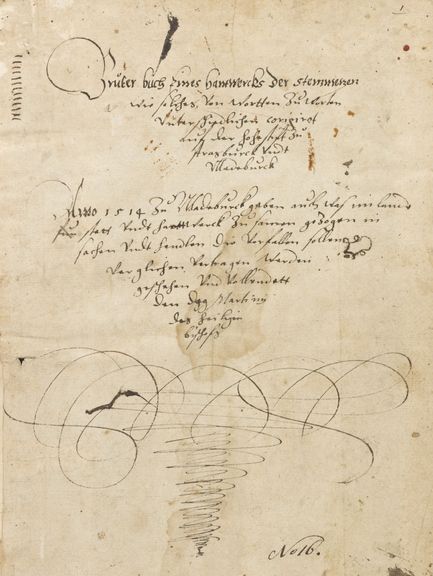 Bruter buch eines hanwercks der stemmetzen
wie solches, von wortten zu worten
Unterschidlichen corigirot
auß der hohe stift zu
straßburck Undt
Madeburck
Anno 1514 Zu Madeburck geben auch was im land
stats Undt hanttwerck Zu samen gezogen in
sachen Undt henlen die Vorfallen sollen
Verglichen Vertragen werden
geschehen Und Vollendett
den dag Martiny
des heiligen
bischofs
No 16.